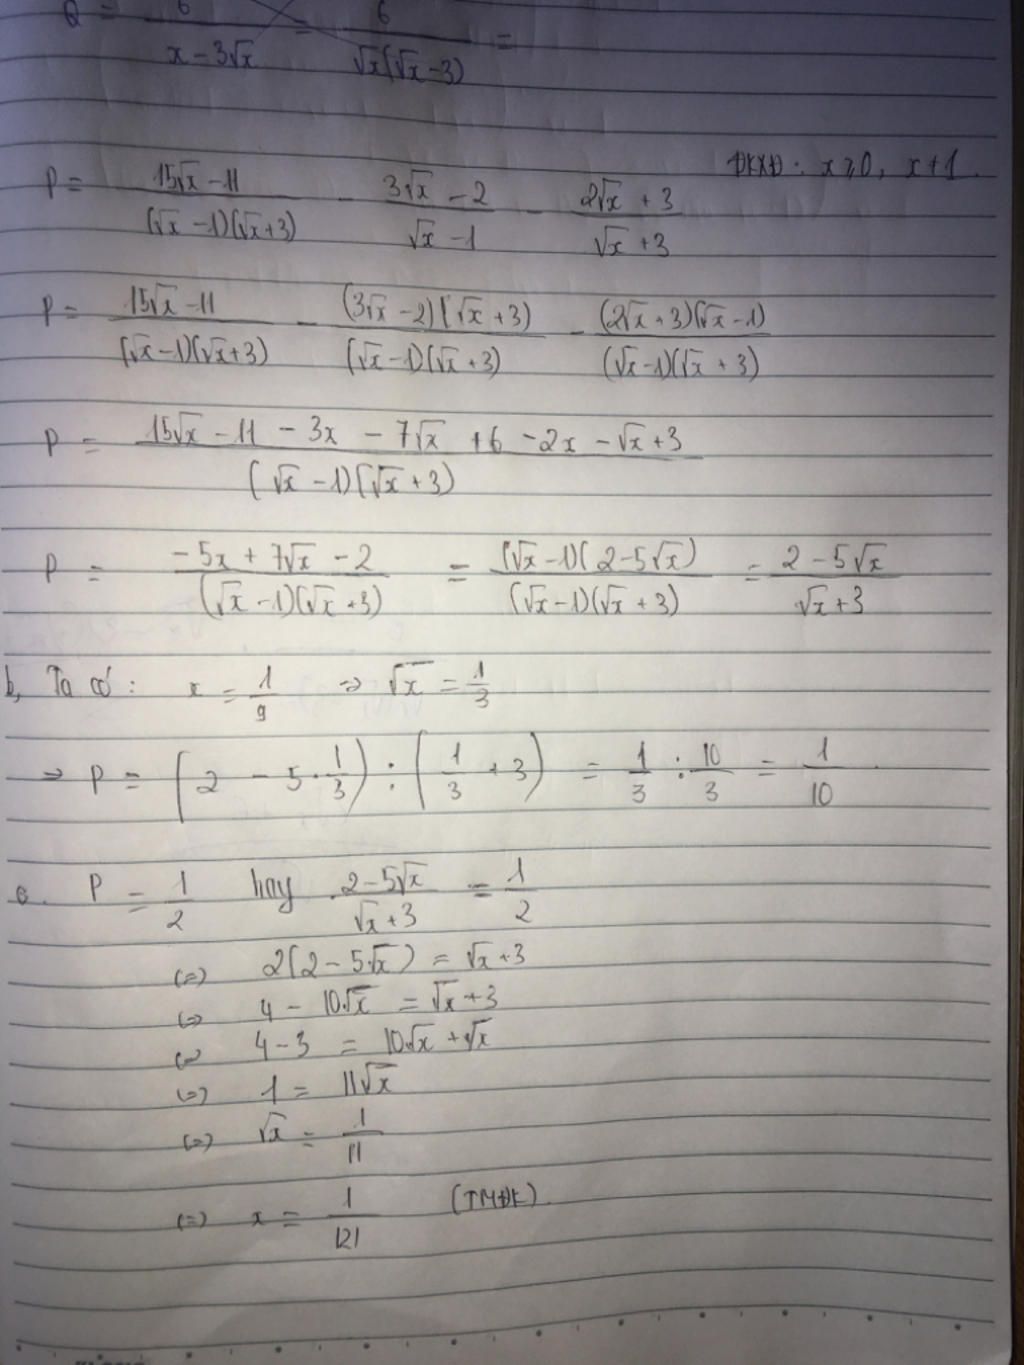 Q = 6/(x - 3√x) = 6/(√x(√x - 3)) =
ĐKXĐ: x ⩾ 0, x ≠ 1.
P = (15√x - 11)/((√x - 1)(√x + 3)) - (3√x - 2)/(√x - 1) - (2√x + 3)/(√x + 3)
P = (15√x - 11)/((√x - 1)(√x + 3)) - ((3√x - 2)(√x + 3))/((√x - 1)(√x + 3)) - ((2√x + 3)(√x - 1))/((√x - 1)(√x + 3))
P = (15√x - 11 - 3x - 7√x + 6 - 2x - √x + 3)/((√x - 1)(√x + 3))
P = (-5x + 7√x - 2)/((√x - 1)(√x + 3)) = ((√x - 1)(2 - 5√x))/((√x - 1)(√x + 3)) = (2 - 5√x)/(√x + 3)
b, Ta có: x = 1/9 ⇒ √x = 1/3
⇒ P = (2 - 5·1/3) : (1/3 + 3) = 1/3 : 10/3 = 1/10
c. P = 1/2 hay (2 - 5√x)/(√x + 3) = 1/2
(=) 2(2 - 5√x) = √x + 3
(=) 4 - 10√x = √x + 3
(=) 4 - 3 = 10√x + √x
(=) 1 = 11√x
(=) √x = 1/11
(=) x = 1/121 (TMĐK).